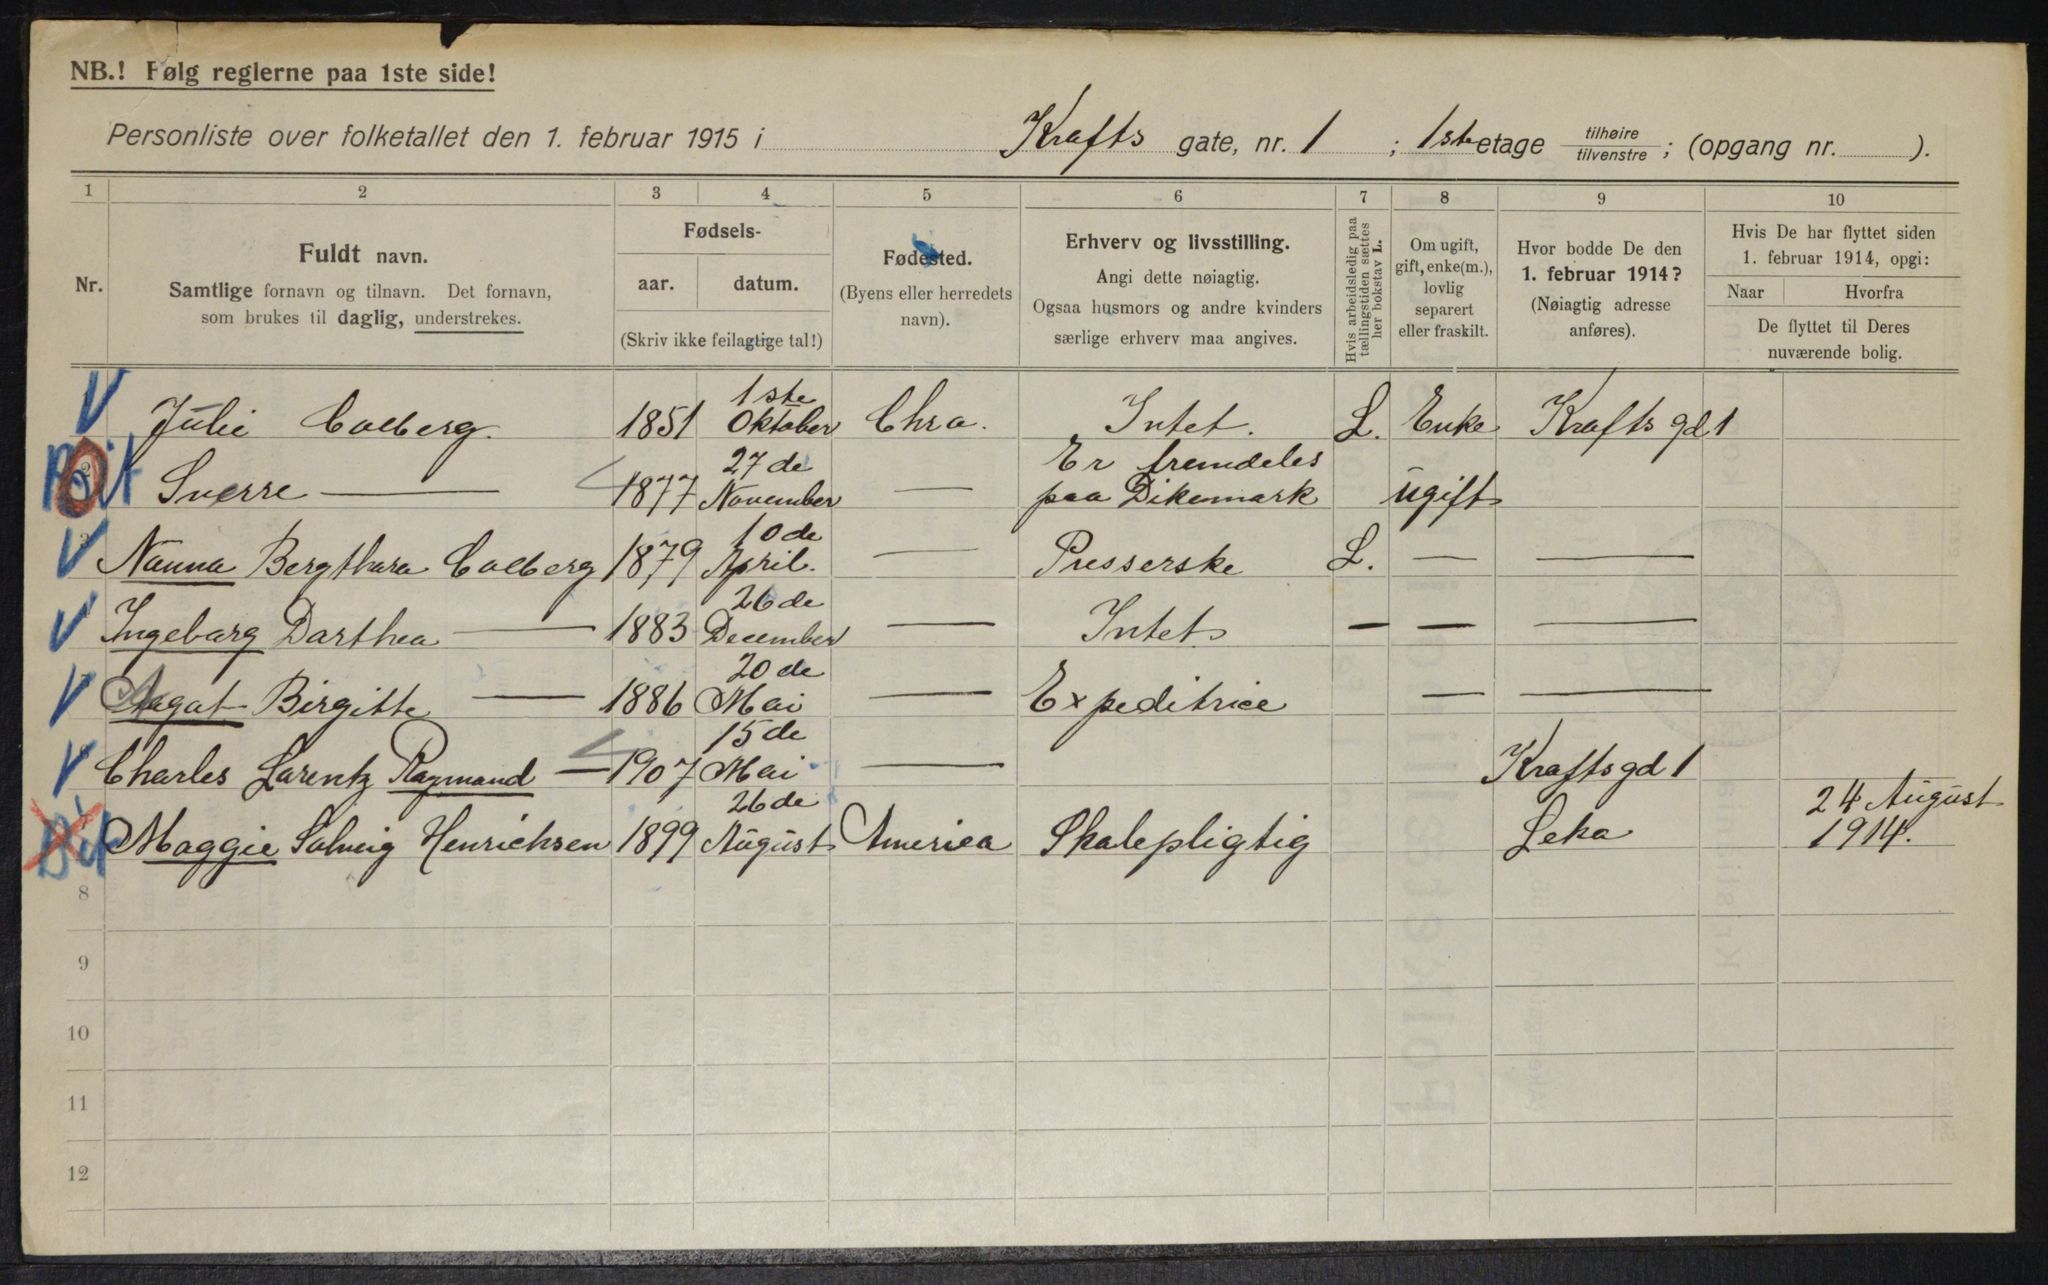 NB.! Følg reglerne paa 1ste side!
Personliste over folketallet den 1. februar 1915 i Krafts gate, nr. 1 ; 1ste etage tilhøire tilvenstre ; (opgang nr. ).
1 2 3 4 5 6 7 8 9 10
Nr.
Fuldt navn.
Samtlige fornavn og tilnavn. Det fornavn,
som brukes til daglig, understrekes.
Fødsels-
aar. datum.
(Skriv ikke feilagtige tal!)
Fødested.
(Byens eller herredets
navn).
Erhverv og livsstilling.
Angi dette nøiagtig.
Ogsaa husmors og andre kvinders
særlige erhverv maa angives.
Hvis arbeidsledig paa
tællingstiden sættes
her bokstav L.
Om ugift,
gift, enke(m.),
lovlig
separert
eller fraskilt.
Hvor bodde De den
1. februar 1914?
(Nøiagtig adresse
anføres).
Hvis De har flyttet siden
1. februar 1914, opgi:
Naar Hvorfra
De flyttet til Deres
nuværende bolig.
Julie Colberg. 1851 1ste Oktober Chra. Intet. L. Enke Krafts gd 1
Sverre — 1877 27de November — Er fremdeles paa Dikemark ugift
Nanna Bergthora Colberg 1879 10de April. — Presserske L. — —
Ingeborg Dorthea — 1883 26de December — Intet — — —
Aagot Birgitte — 1886 20de Mai — Expeditrice — —
Charles Lorentz Raymond — 1907 15de Mai — Krafts gd 1
Maggie Solveig Henrichsen 1899 26de August America Skolepligtig Leka 24 August 1914.
8
9
10
11
12